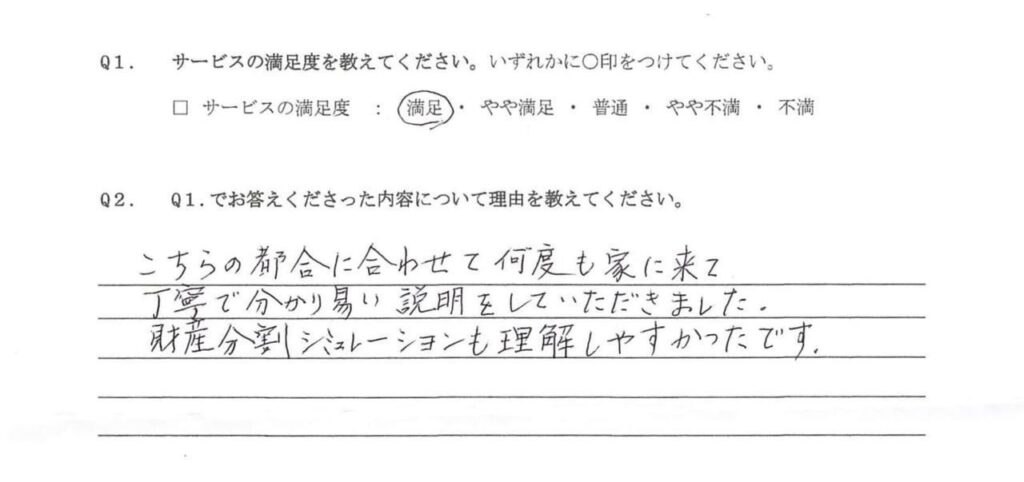 Q1. サービスの満足度を教えてください。いずれかに〇印をつけてください。
□ サービスの満足度 : 満足・ やや満足 ・ 普通 ・ やや不満 ・ 不満
Q2. Q1.でお答えくださった内容について理由を教えてください。
こちらの都合に合わせて何度も家に来て
丁寧で分かり易い説明をしていただきました.
財産分割シミュレーションも理解しやすかったです.